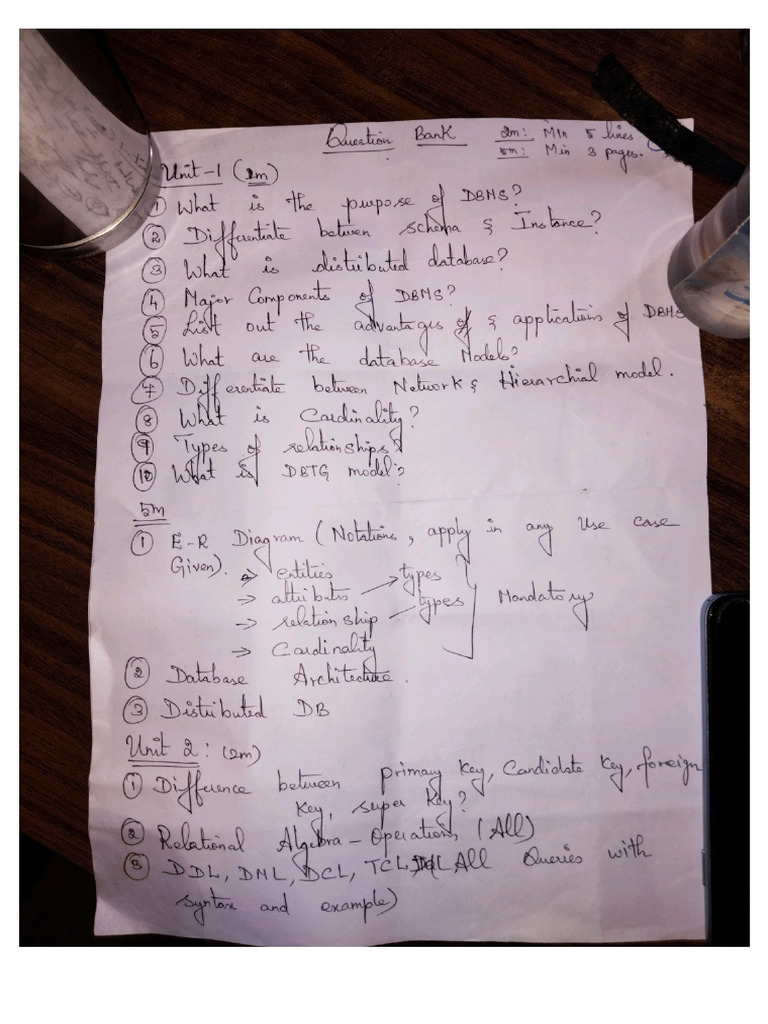 Question Bank 2m: Min 5 lines
5m: Min 3 pages.
Unit-1 (2m)
① What is the purpose of DBMS?
② Differentiate betwen schema & Instance?
③ What is distributed database?
④ Major Components of DBMS?
⑤ List out the advantages of & applications of DBMS
⑥ What are the database Models?
⑦ Differentiate between Network & Hierarchial model.
⑧ What is Cardinality?
⑨ Types of relationships?
⑩ What is DBTG model?
5m
① E-R Diagram (Notations, apply in any use case
Given). → entities
→ attributes → types
→ relationship — types Mandatory
→ Cardinality
② Database Architecture.
③ Distributed DB
Unit 2: (2m)
① Difference between primary key, Candidate key, foreign
key, super key?
② Relational Algebra - Operations (All)
③ DDL, DML, DCL, TCL All Queries with
syntax and example)